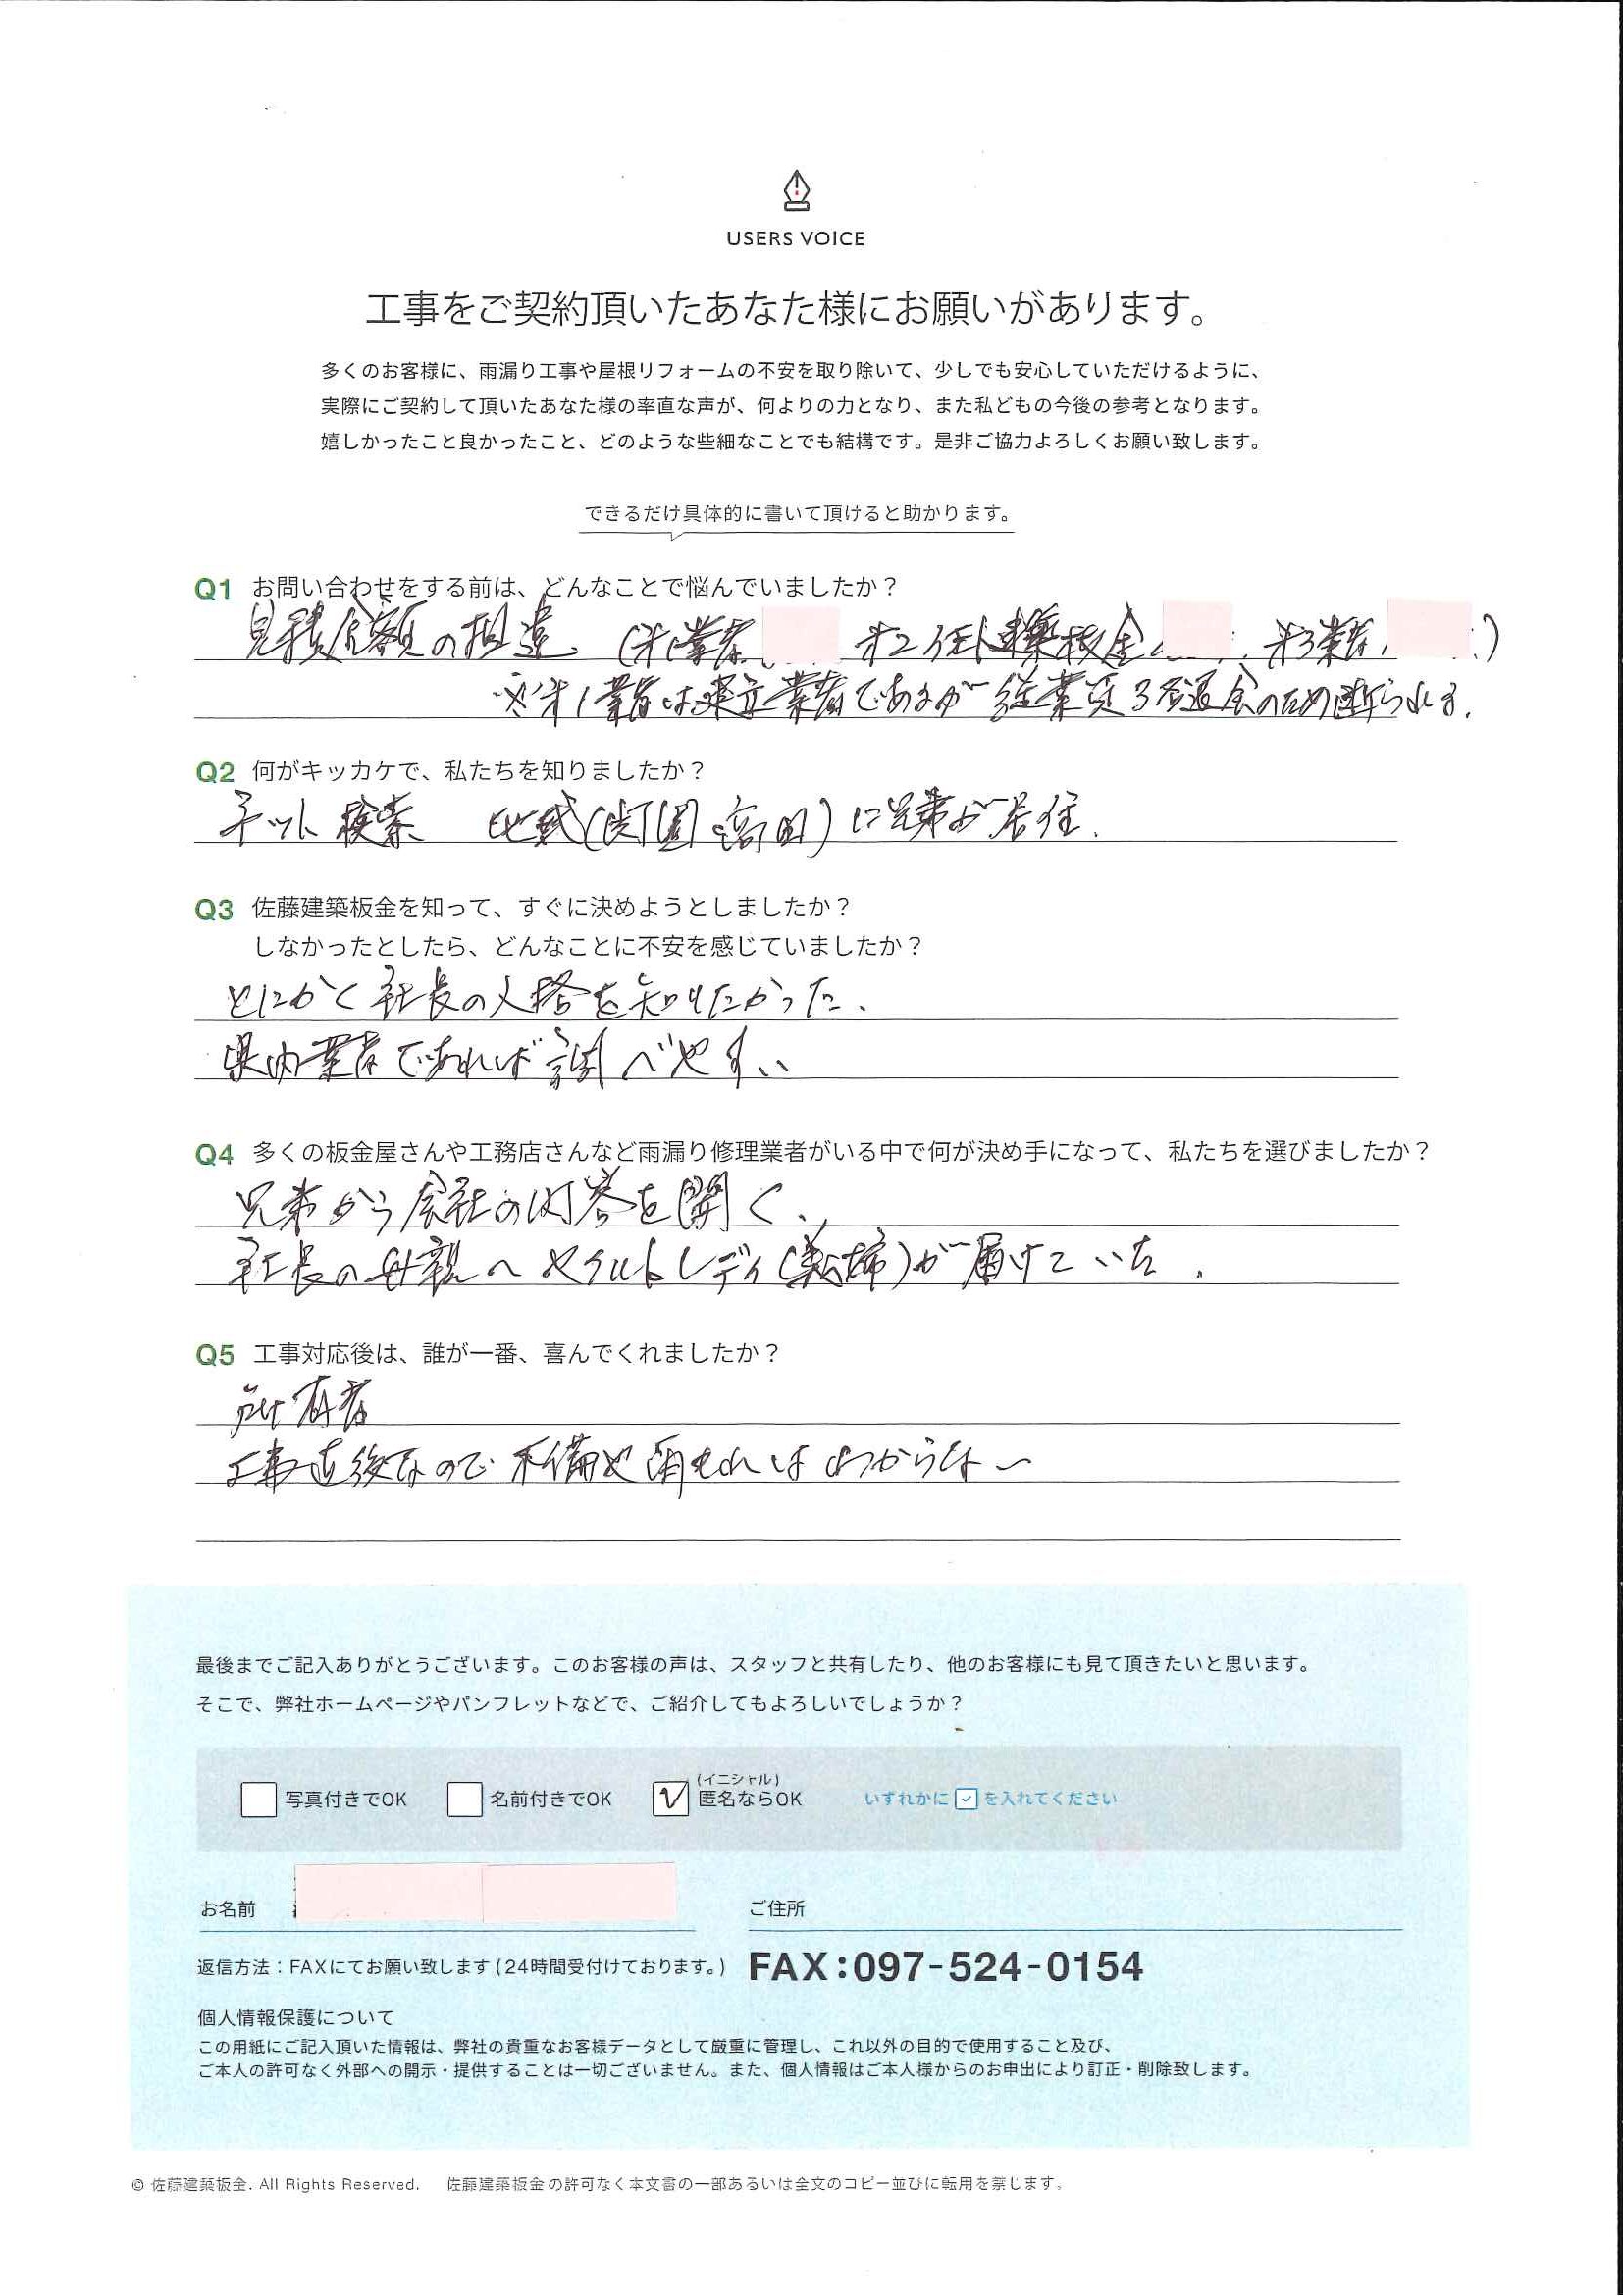 USERS VOICE
工事をご契約頂いたあなた様にお願いがあります。
多くのお客様に、雨漏り工事や屋根リフォームの不安を取り除いて、少しでも安心していただけるように、
実際にご契約して頂いたあなた様の率直な声が、何よりの力となり、また私どもの今後の参考となります。
嬉しかったこと良かったこと、どのような些細なことでも結構です。是非ご協力よろしくお願い致します。
できるだけ具体的に書いて頂けると助かります。
Q1 お問い合わせをする前は、どんなことで悩んでいましたか？
見積金額の相違 (第1業者 第2佐ト建築板金 第3業者 )
※第1業者は建立業者であるが従業員3名退会のため断られる.
Q2 何がキッカケで、私たちを知りましたか？
ネット検索 地域( 宮田)に兄弟が居住.
Q3 佐藤建築板金を知って、すぐに決めようとしましたか？
しなかったとしたら、どんなことに不安を感じていましたか？
とにかく社長の人格を知りたかった.
県内業者であれば調べやすい
Q4 多くの板金屋さんや工務店さんなど雨漏り修理業者がいる中で何が決め手になって、私たちを選びましたか？
兄弟から会社の内容を聞く.
社長の母親へヤクルトレディ(義姉)が届けていた.
Q5 工事対応後は、誰が一番、喜んでくれましたか？
所有者
工事直後なので不備や雨もれはわからない
最後までご記入ありがとうございます。このお客様の声は、スタッフと共有したり、他のお客様にも見て頂きたいと思います。
そこで、弊社ホームページやパンフレットなどで、ご紹介してもよろしいでしょうか？
(イニシャル)
写真付きでOK 名前付きでOK 匿名ならOK いずれかに を入れてください
お名前 ご住所
返信方法：FAXにてお願い致します(24時間受付けております。) FAX:097-524-0154
個人情報保護について
この用紙にご記入頂いた情報は、弊社の貴重なお客様データとして厳重に管理し、これ以外の目的で使用すること及び、
ご本人の許可なく外部への開示・提供することは一切ございません。また、個人情報はご本人様からのお申出により訂正・削除致します。
© 佐藤建築板金. All Rights Reserved. 佐藤建築板金の許可なく本文書の一部あるいは全文のコピー並びに転用を禁じます。